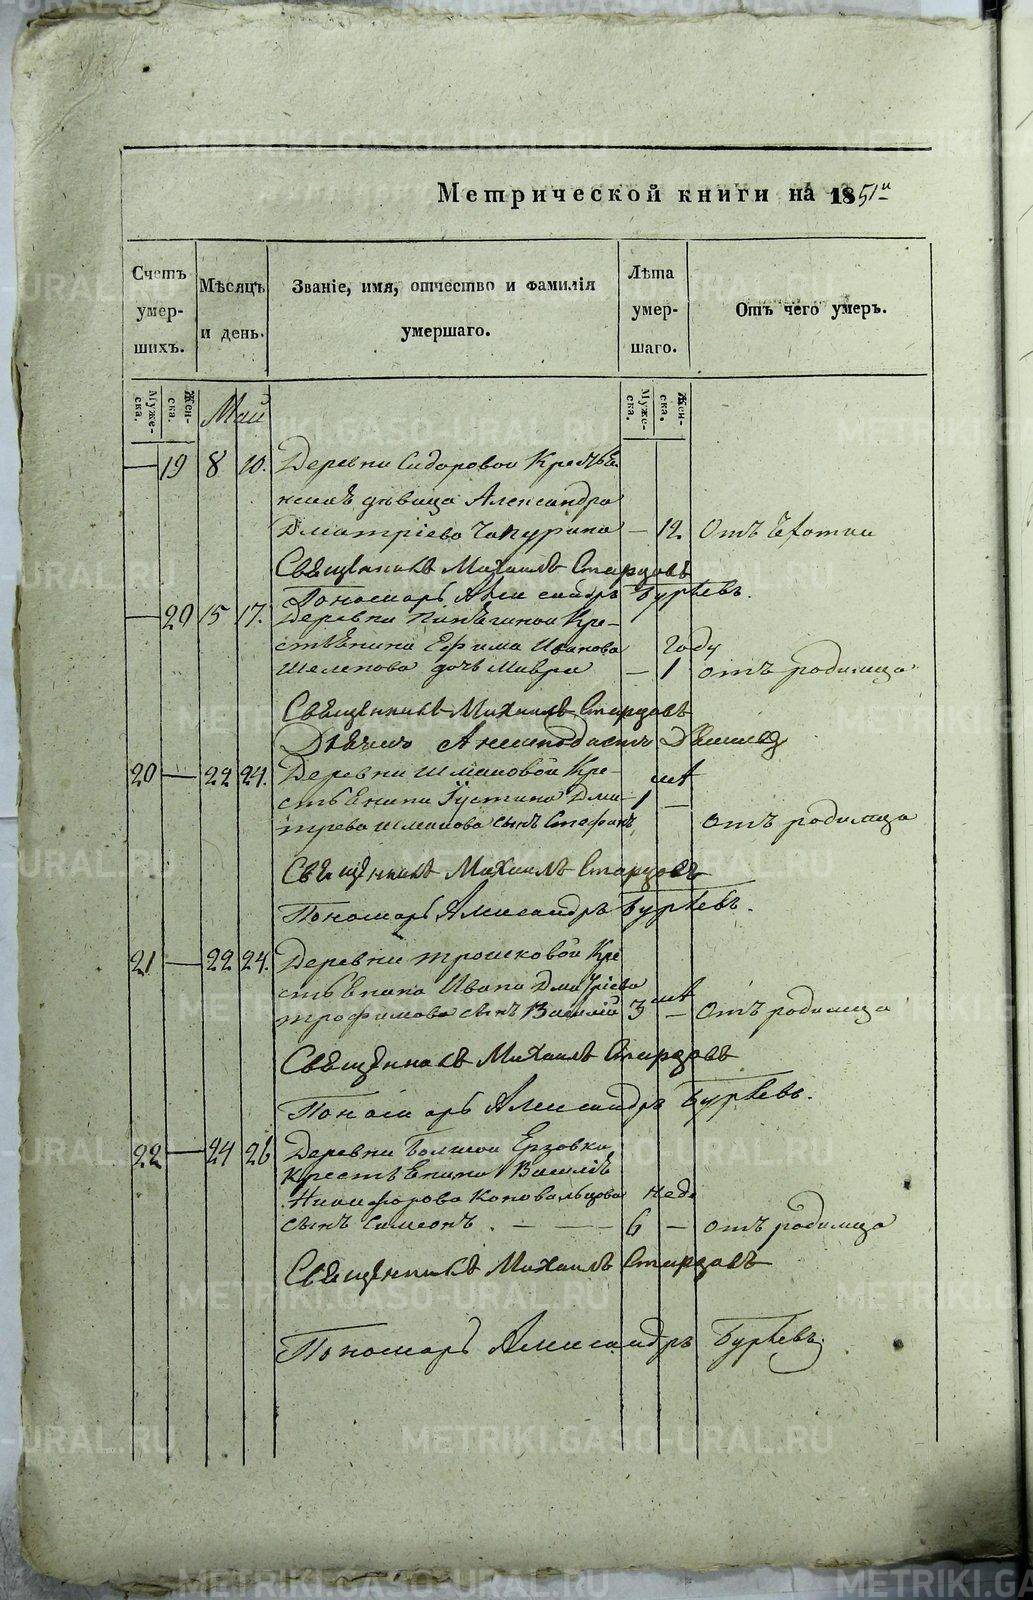 Метрической книги на 1851й
Счетъ умер- шихъ.
Мѣсяцъ и день.
Званіе, имя, отчество и фамилія умершаго.
Лѣта умер- шаго.
Отъ чего умеръ.
Муже- ска.
Жен- ска.
Май
Муже- ска.
Жен- ска.
— 19 8 10. Деревни Сидоровой Крестья
девица Александра
Дмитріева Чапурина — 12. Отъ чахотки
Священникъ Михаилъ Старцовъ
Пономарь Александръ Бурѣевъ.
— 20 15 17. Деревни Кре-
стьянина Ефима Иванова году
Шелепова дочь Мавра — 1 отъ родимца
Священникъ Михаилъ Старцовъ
Дьячекъ
20 — 22 24. Деревни Шмаковой Кре-
стьянина Густина Дми- лѣт
тріева Шмакова сынъ Стефанъ 1 — отъ родимца
Священникъ Михаилъ Старцовъ
Пономарь Александръ Бурѣевъ.
21 — 22 24. Деревни Трошковой Кре
стьянина Ивана Дмитріева лѣт
Трофимова сынъ Василій 3 — отъ родимца
Священникъ Михаилъ Старцовъ
Пономарь Александръ Бурѣевъ.
22 — 24 26 Деревни Большой Ерзовки
крестьянина Василія
Никифорова Коновальцова неде
сынъ Симеонъ. — — 6 — отъ родимца
Священникъ Михаилъ Старцовъ
Пономарь Александръ Бурѣевъ.
METRIKI.GASO-URAL.RU